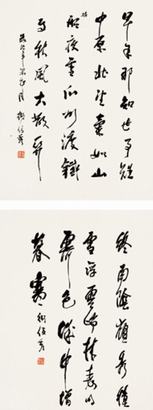 早年那知世事艱
中原北望氣如山
樓船夜雪瓜洲渡鐵
馬秋風大散關
終南陰嶺秀積
雪浮雲端林表明
霽色城中增
暮寒